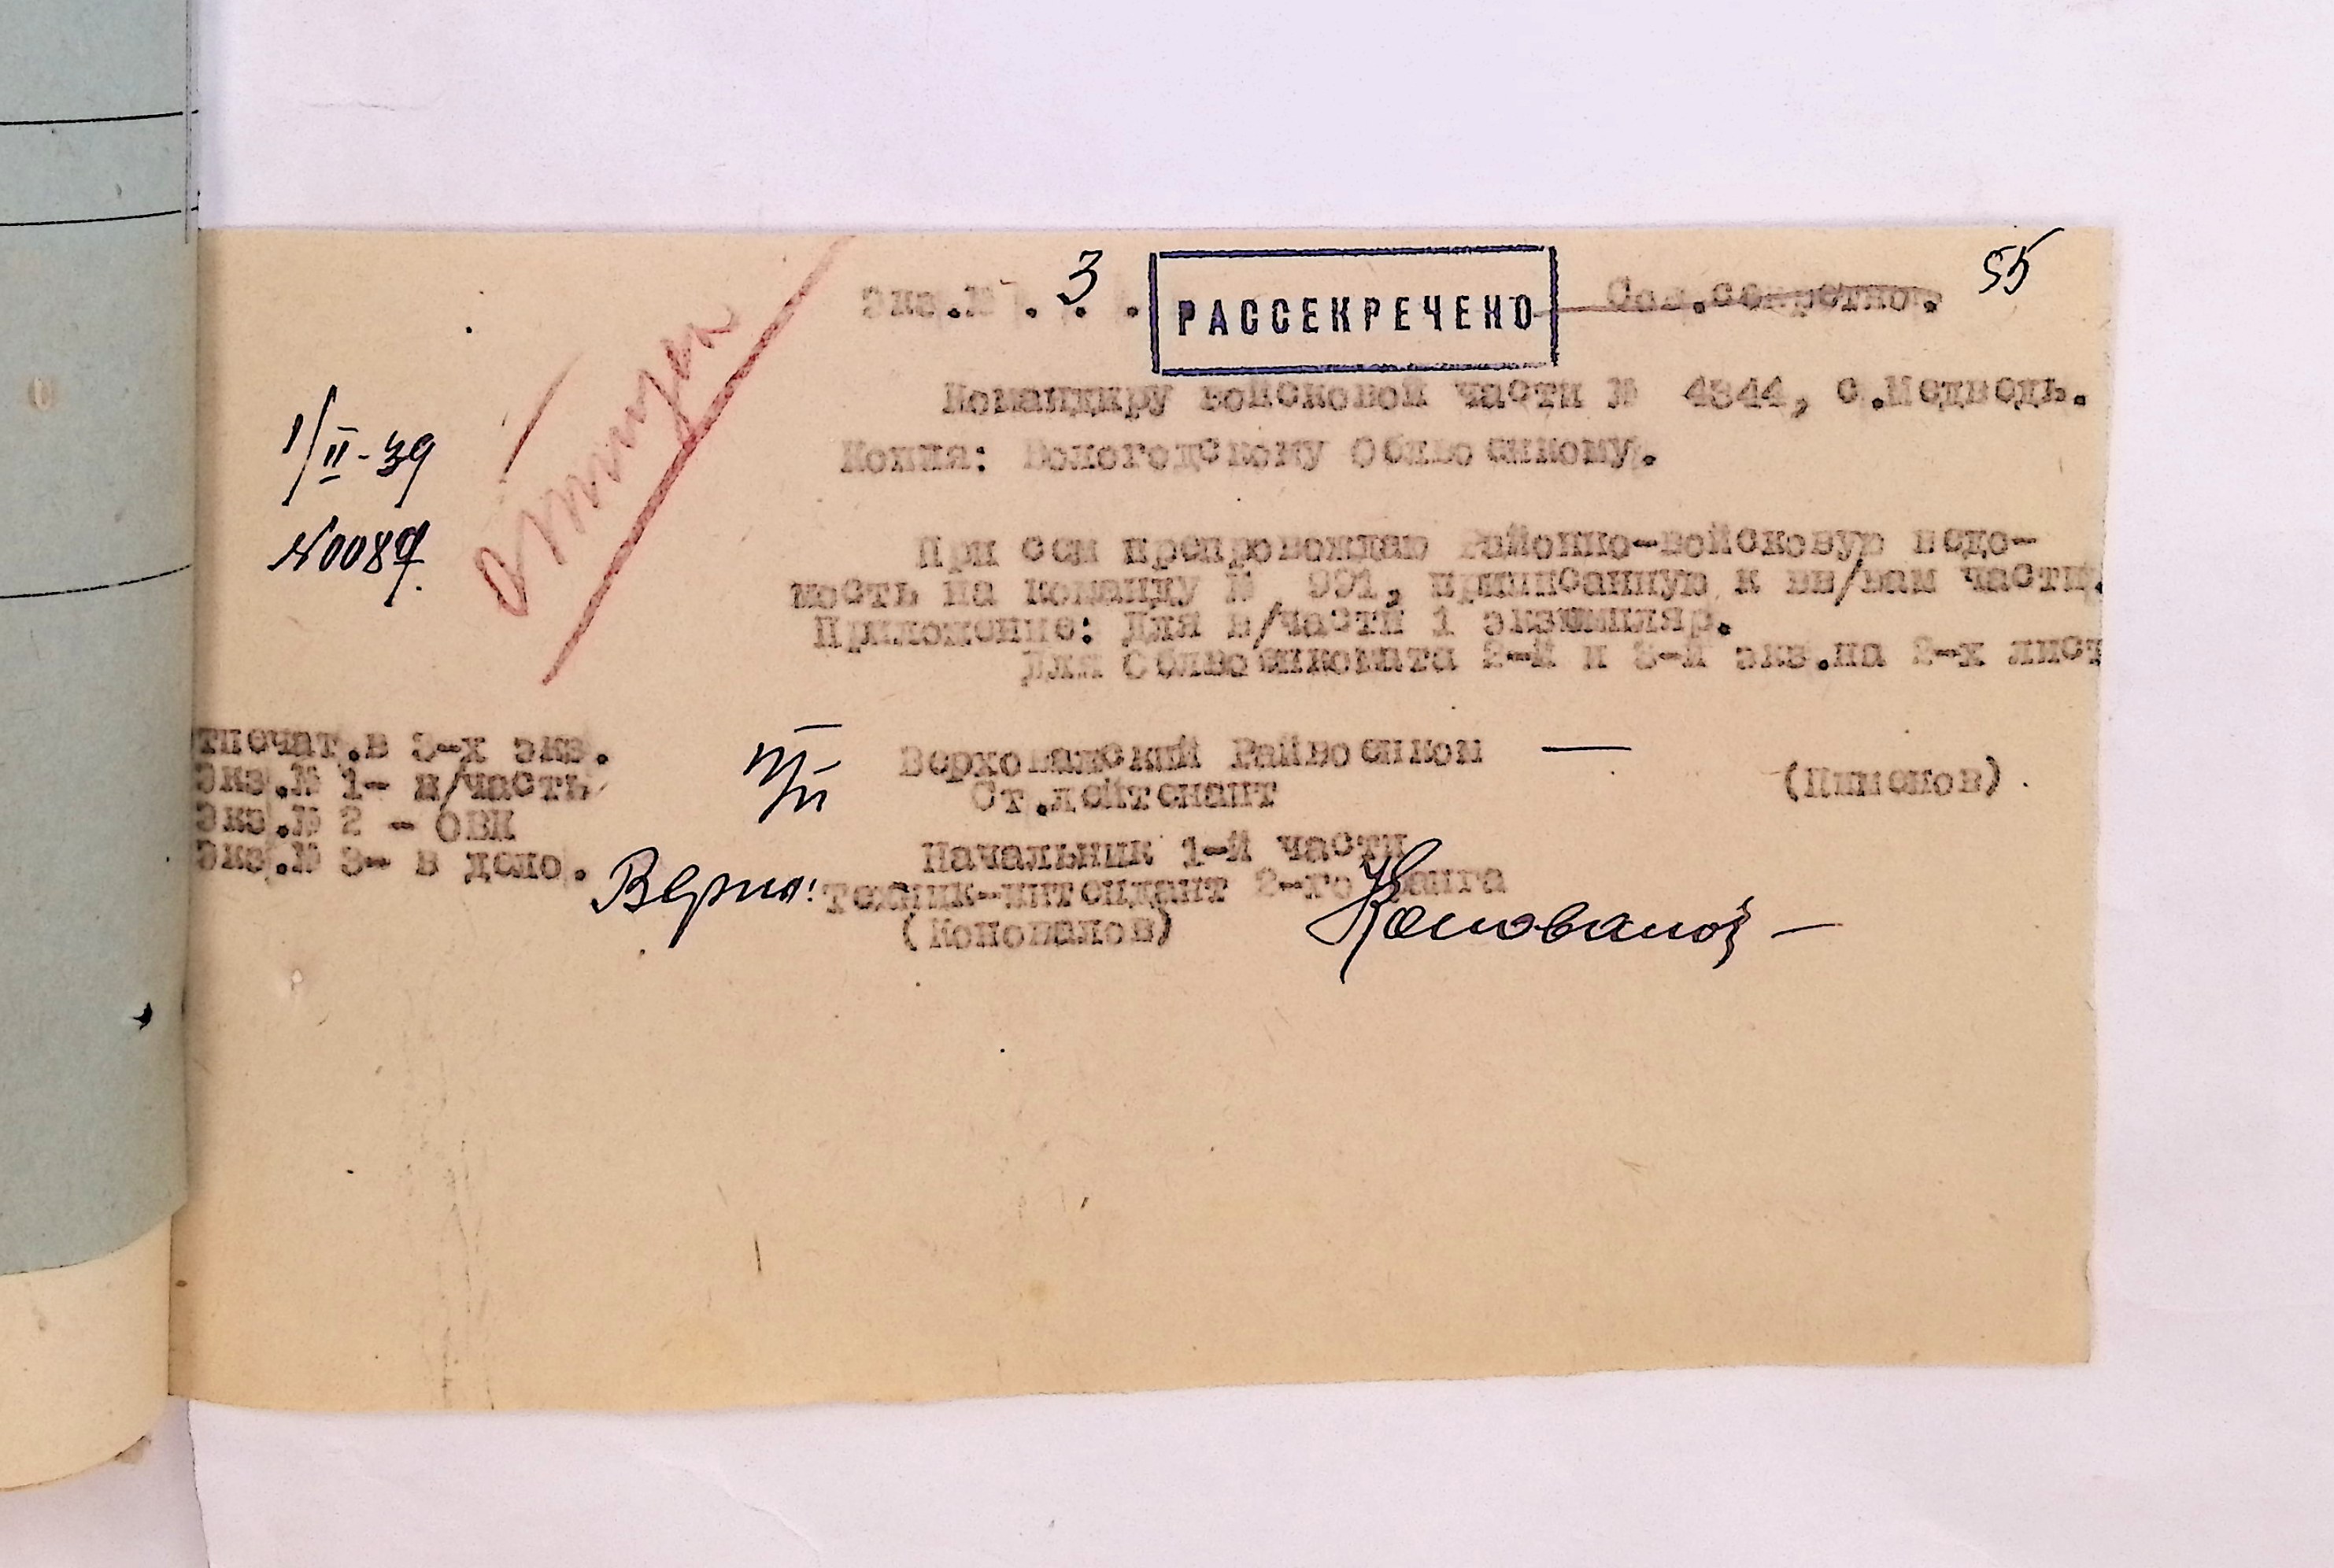 Экз.№ . 3 .
РАССЕКРЕЧЕНО
Сов.секретно.
55
Командиру войсковой части № 4344, с.Медведь.
Копия: Вологодскому Облвоенкому.
1/II-39
№0089.
При сем препровождаю Районно-войсковую ведо-
мость на команду № 991, приписанную к вв/вам части.
Приложение: Для в/части 1 экземпляр.
Для Облвоенкомата 2-й и 3-й экз.на 2-х лист
тпечат.в 3-х экз.
Экз.№ 1- в/часть
Экз.№ 2 - ОВК
Экз.№ 3- в дело.
п/п Верховажский Райвоенком
Ст.лейтенант
(Пименов).
Начальник 1-й части
Верно: техник-интендант 2-го ранга
(Коновалов)
Коновалов